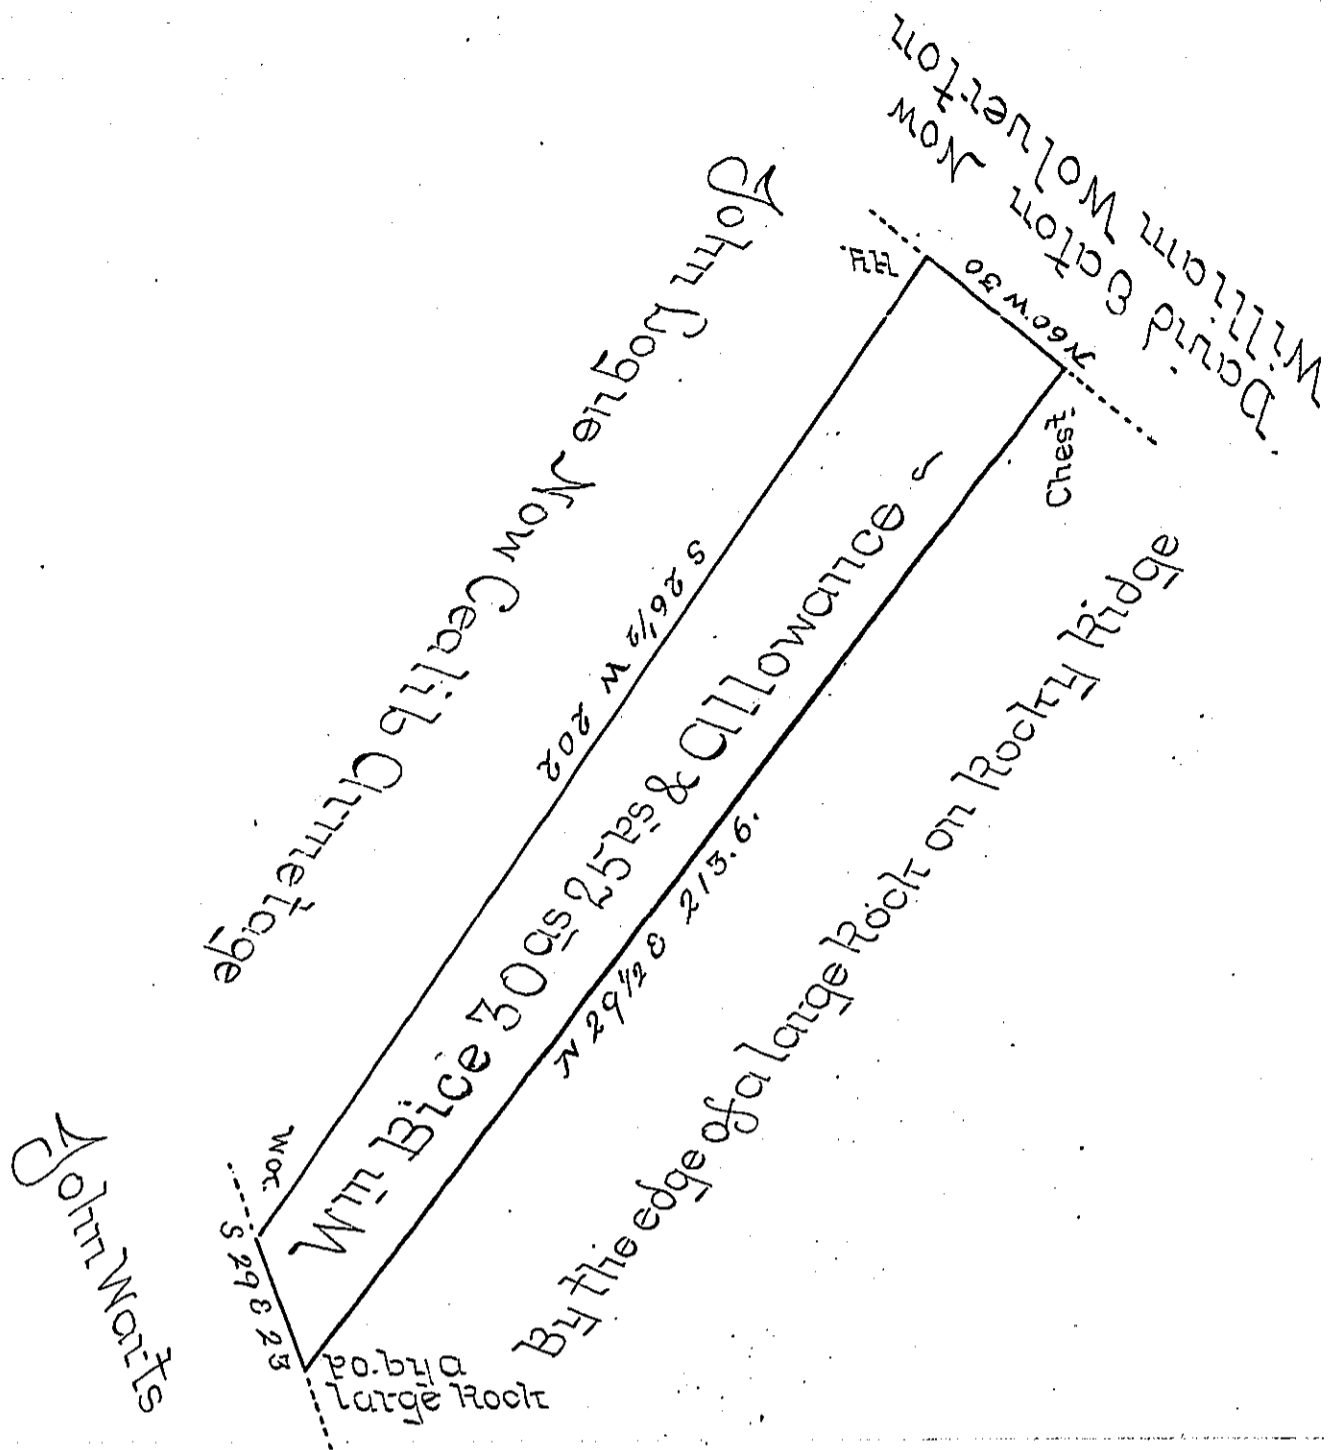 David Eaton Now
William Wolverton
John Pogue Now Cealib Armetage
HH.
N60°W 30
Chest.
S 26 1/2 W 202
Wm Bice 30 as 25 ps & Allowance
N 29 1/2 E 213.6.
By the edge of a large Rock on Rocky Ridge
W.O.
S 29 E 23
John Warts
Po. by a
large Rock